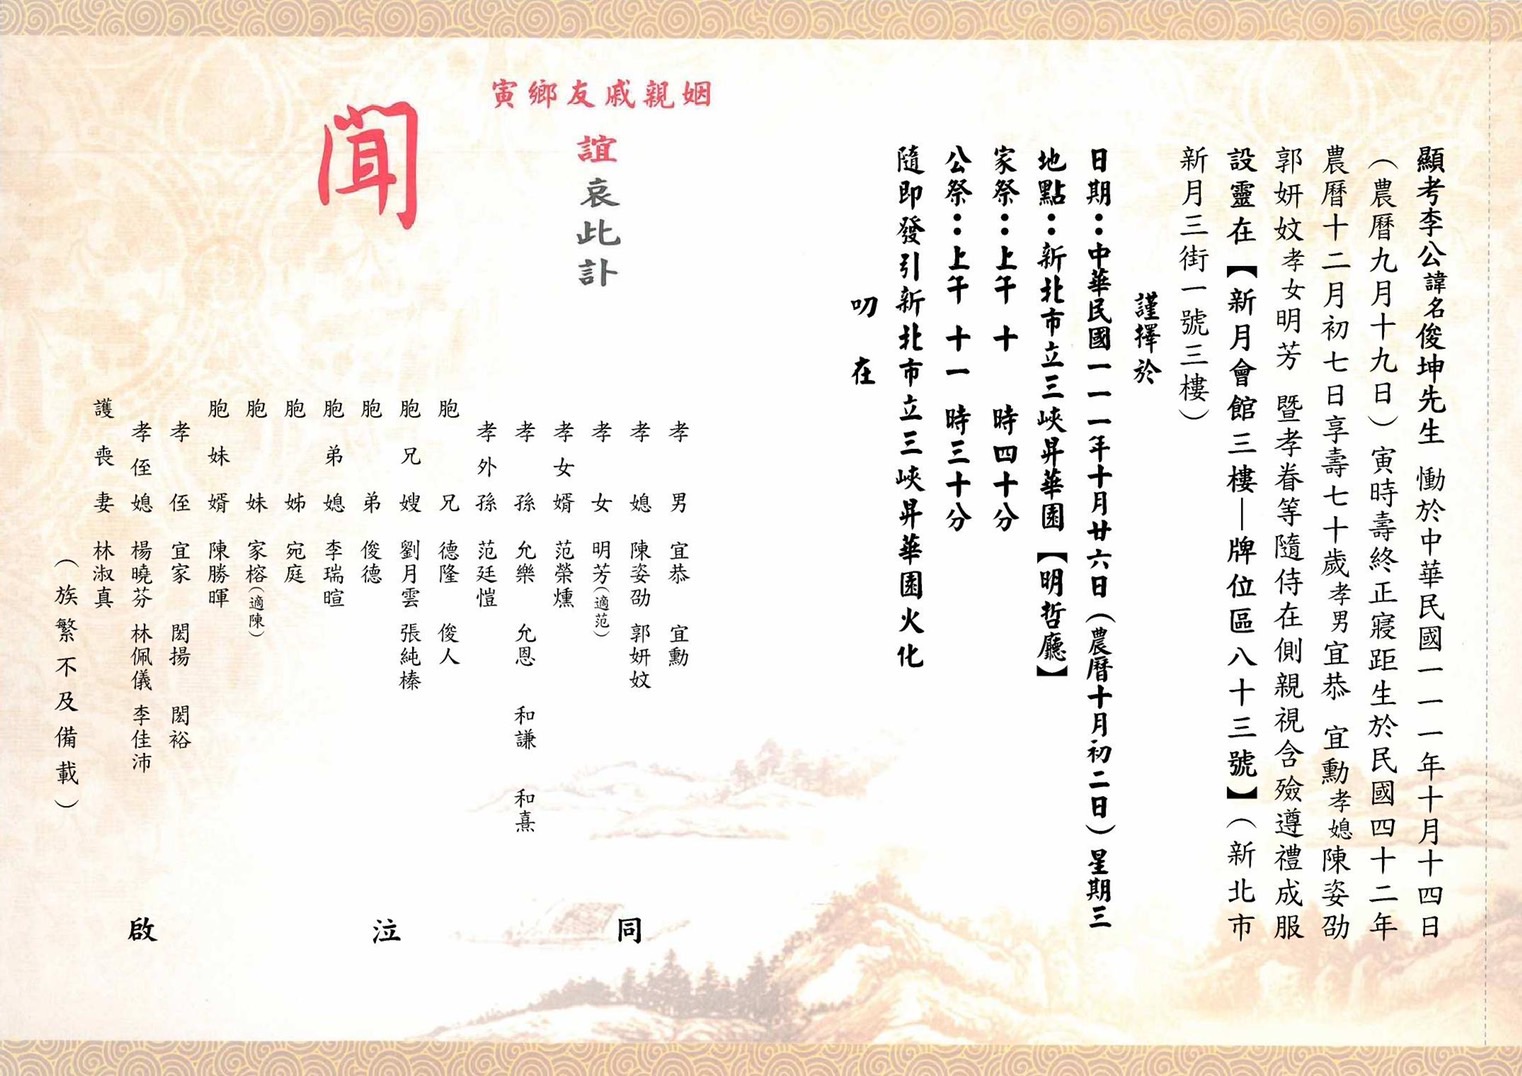 顯考李公諱名俊坤先生 慟於中華民國一一一年十月十四日
（農曆九月十九日）寅時壽終正寢距生於民國四十二年
農曆十二月初七日享壽七十歲孝男宜恭 宜勳孝媳陳姿劭
郭妍妏孝女明芳 暨孝眷等隨侍在側親視含殮遵禮成服
設靈在【新月會館三樓—牌位區八十三號】（新北市
新月三街一號三樓）
謹擇於
日期：中華民國一一一年十月廿六日（農曆十月初二日）星期三
地點：新北市立三峽昇華園【明哲廳】
家祭：上午 十 時四十分
公祭：上午 十一 時三十分
隨即發引新北市立三峽昇華園火化
叨 在
姻親戚友鄉寅
誼哀此訃
聞
孝男 宜恭 宜勳
孝媳 陳姿劭 郭妍妏
孝女 明芳（適范）
孝女婿 范榮燻
孝孫 允樂 允恩 和謙 和熹
孝外孫 范廷愷
胞兄 德隆 俊人
胞兄嫂 劉月雲 張純榛
胞弟 俊德
胞弟媳 李瑞暄
胞姊 宛庭
胞妹 家榕（適陳）
胞妹婿 陳勝暉
孝侄 宜家 閎揚 閎裕
孝侄媳 楊曉芬 林佩儀 李佳沛
護喪妻 林淑真
（族繁不及備載）
同 泣 啟